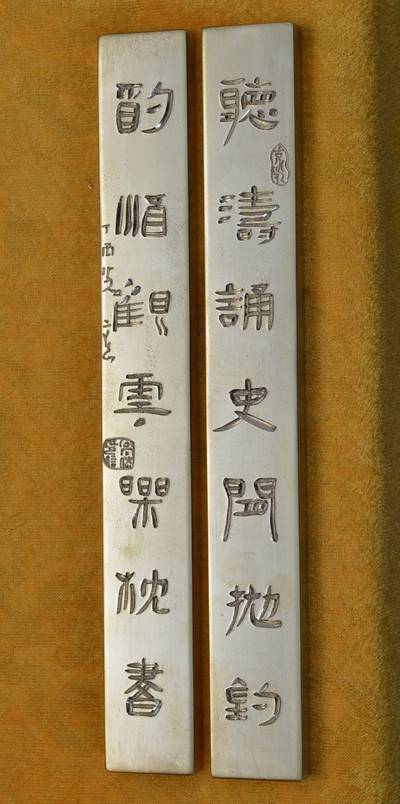 聽濤誦史閒拋釣
韵順觀雲槑枕書
丁酉